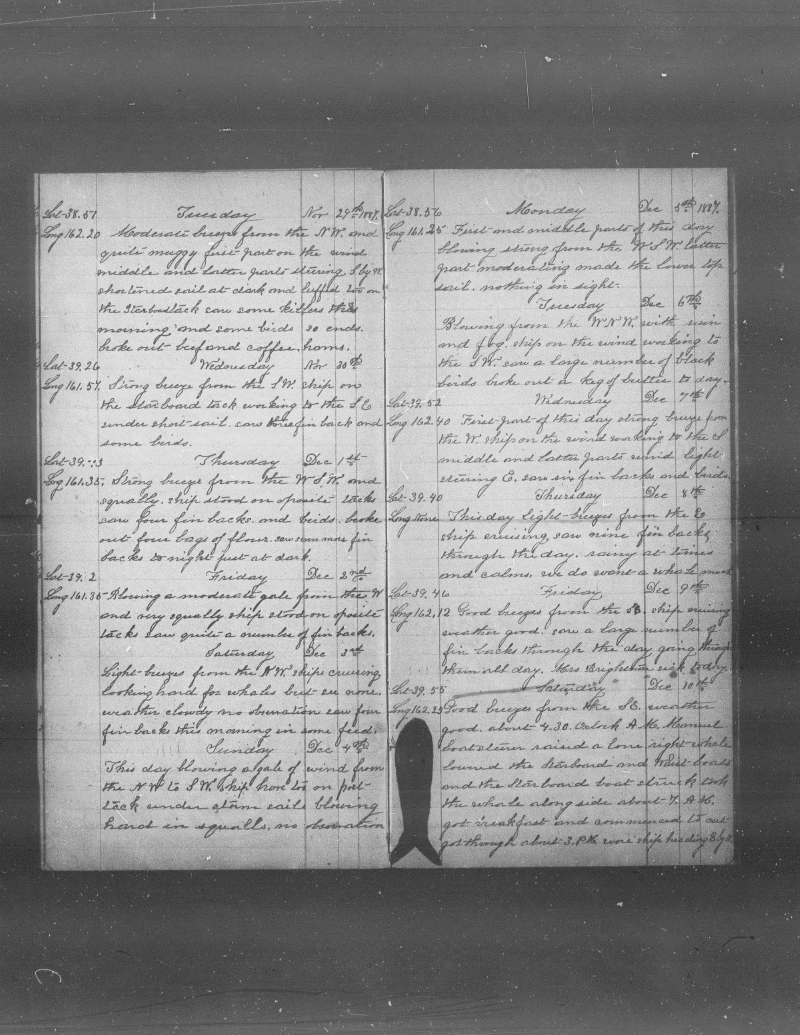 Lat 38.51 Tuesday Nov 29th 1887.
Long 162.20 Moderate breeze from the N.W. and
quite muggy first part on the wind
middle and latter parts steering S by W.
shortened sail at dark and luffed too on
the Starbortack saw some killers this
morning and some birds so ends.
broke out beef and coffee, hams.
Lat 39.26 Wednesday Nov 30th
Long 161.57. Strong breeze from the S.W. ship on
the starboard tack working to the S.E
under short sail. saw three fin back and
some birds.
Lat 39. Thursday Dec 1st
Log 161.35. Strong breeze from the W S.W. and
squally. ship stood on oposite tacks
saw four fin backs. and birds. broke
out four bags of flour. saw some more fin
backs to night just at dark.
Lat 39.2 Friday Dec 2nd
Long 161.35 Blowing a moderate gale from the W
and very squally ship stood on oposite
tacks saw quite a number of fin backs.
Saturday Dec 3rd
Light breezes from the N.W. ship cruising
looking hard for whales but see none,
weather clowdy no observation saw four
fin backs this morning in some feed.
Sunday Dec 4th
This day blowing a gale of wind from
the N.W to S.W. ship hove too on port
tack under storm sails blowing
hard in squalls, no observation
Lat 38.56 Monday Dec 5th 1887.
Long 161.25 First and middle parts of this day
blowing strong from the W S W. latter
part moderating made the lower top
sail. nothing in sight.
Tuesday Dec 6th
Blowing from the W N W. with rain
and fog. ship on the wind working to
the S.W. saw a large number of black
birds broke out a keg of butter to day.
Lat 39.52 Wednesday Dec 7th
Long 162.40 First part of this day strong breeze from
the W. ship on the wind working to the S
middle and latter parts wind light
steering E. saw six fin backs and birds.
Lat 39.40 Thursday Dec 8th
Long None This day light breezes from the
ship cruising. saw nine fin backs
through the day. rainy at times
and calms. we do want a whale
Lat 39.46 Friday, Dec 9th
Long 162.12 Good breezes from the ship cruising
weather good. saw a large number of
fin backs through the day going
them all day. Mrs Brightman sick today
Lat 39.55 Saturday Dec 10th
Long 162.29 Good breezes from the S.E. weather
good. about 4.30. Oclock A.M. Manuel
boatsteerer raised a lone right whale
lowered the Starboard and Waist boats
and the Starboard boat struck took
the whale along side about 7. A.M.
got breakfast and commenced to cut
got through about 3.P.M. wore ship heading